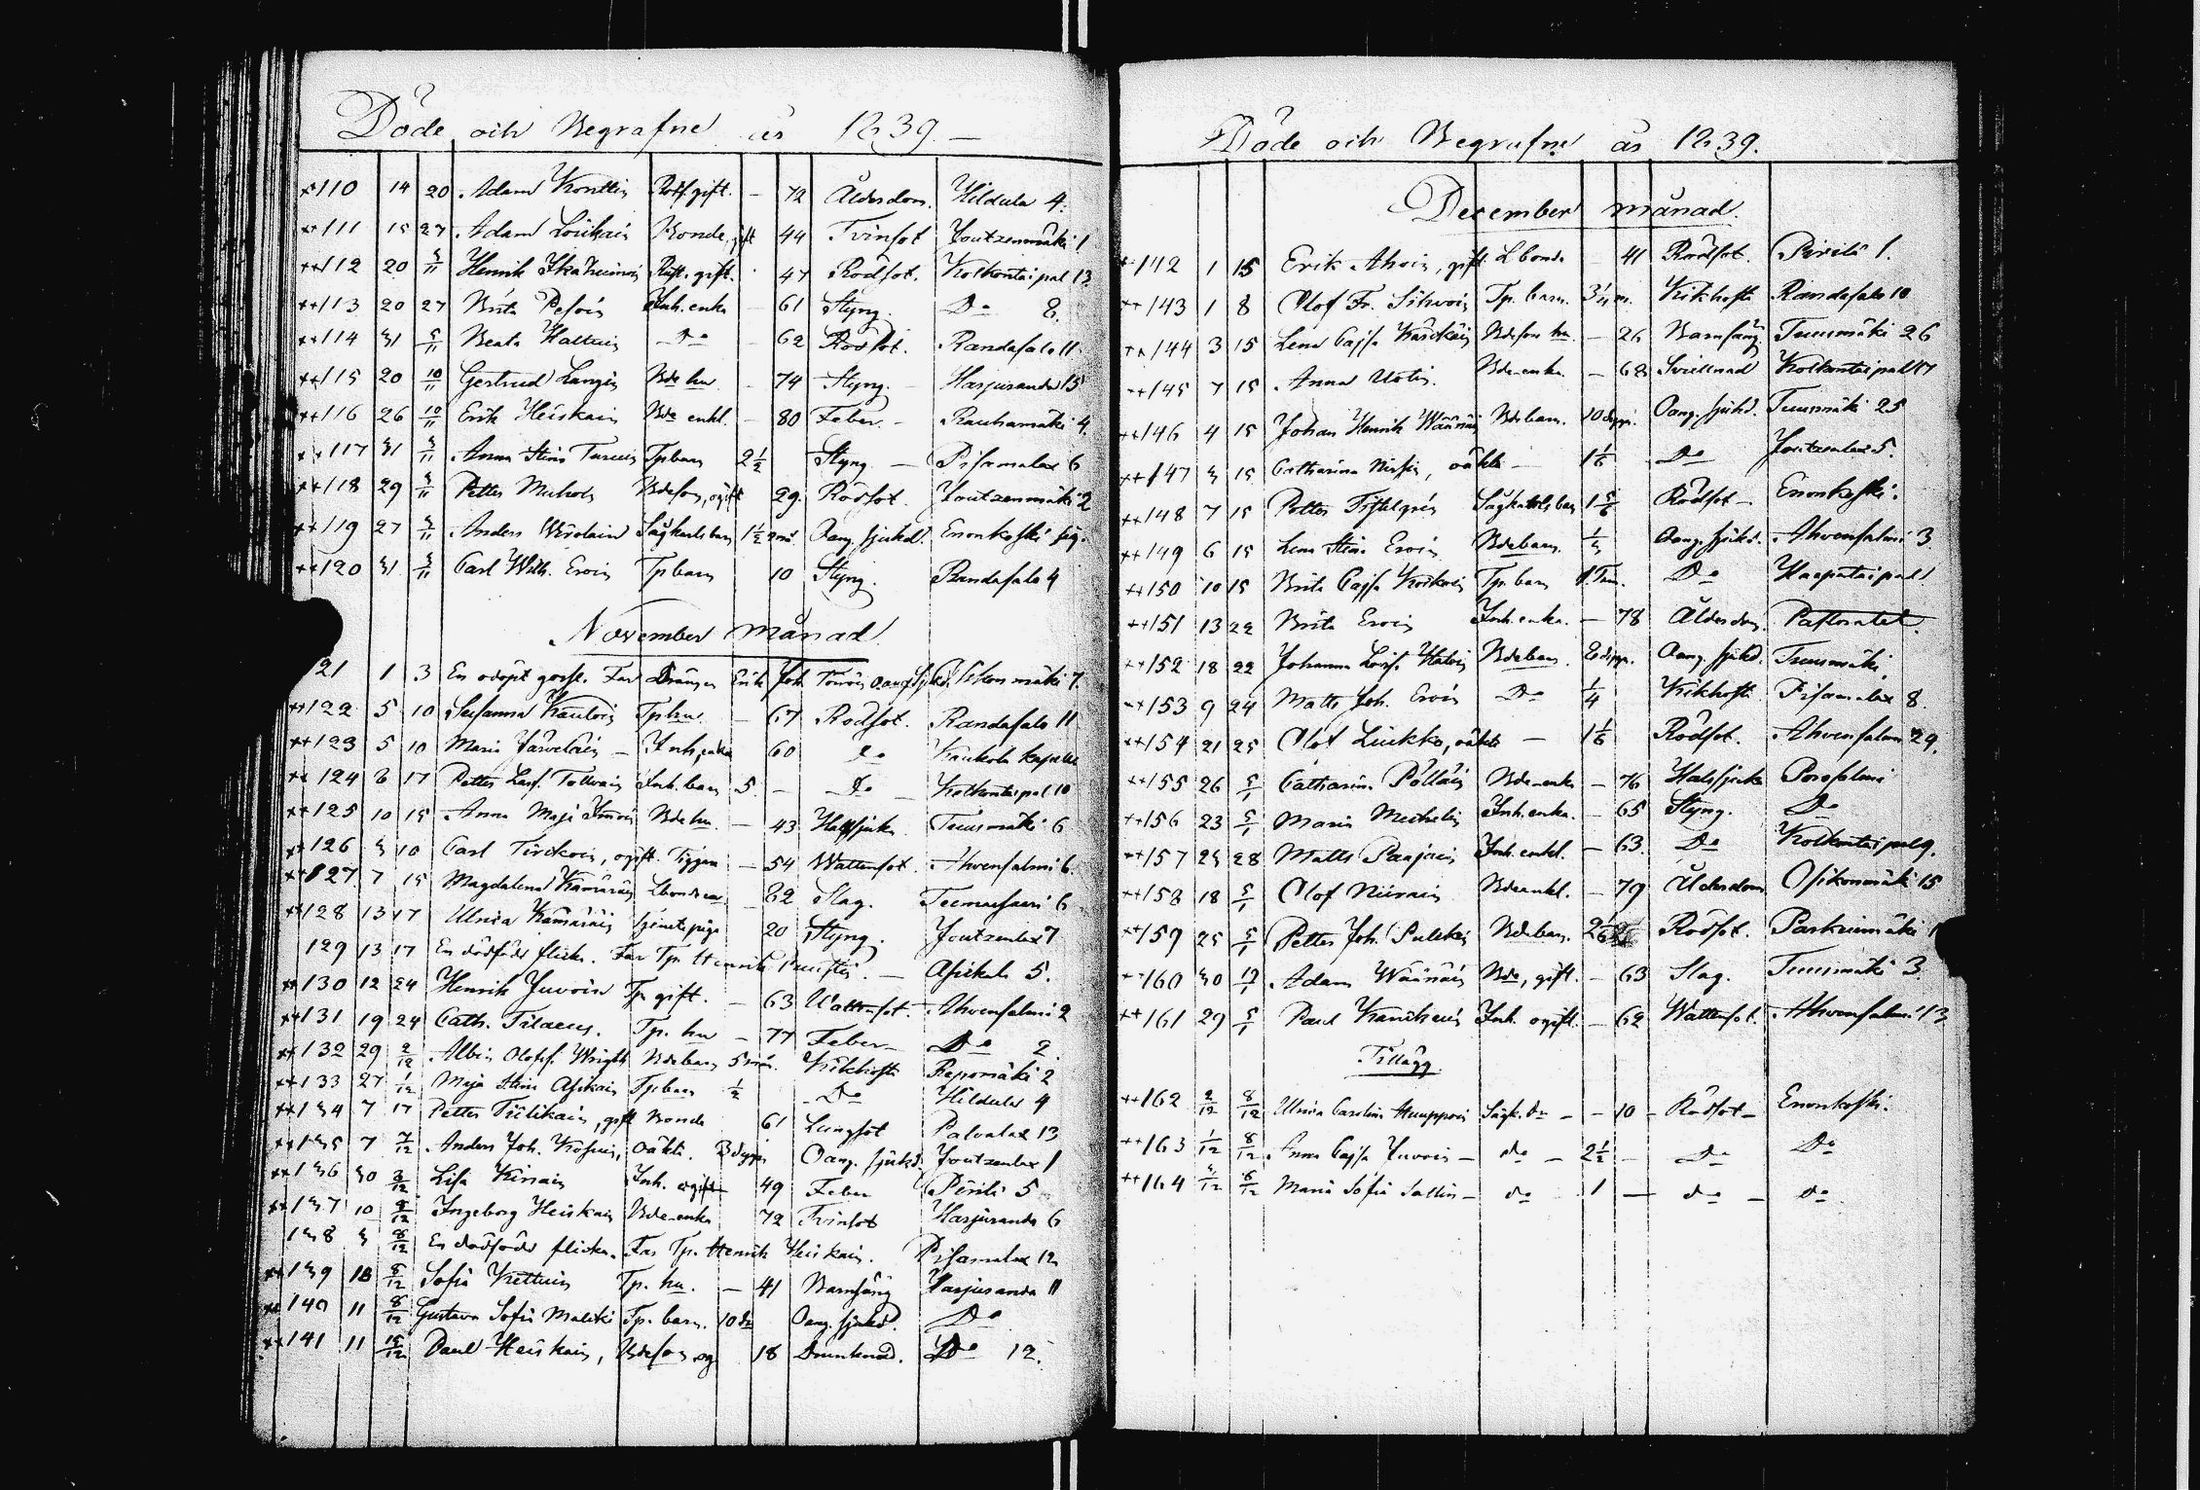 Döde och Begrafne år 1839.
110 14 20 Adam Konttin gift. — 72 Ålderdom. Hildula 4.
111 15 27 Adam Loikain Bonde, gift 44 Tvinsot Joutzenmäki 1
112 20 3/11 Henrik gift. 47 Rödsot. Kolkontaipal 13
113 20 27 Brita Pesoin Inh. enka — 61 Styng. Do 8.
114 31 5/11 Beata Halttuin Do — 62 Rödsot. Randasalo 11.
115 20 10/11 Gertrud Langin Bde hu — 74 Styng. Harjuranda 15
116 26 10/11 Erik Heiskain Bde enkl. — 80 Feber. Rauhamäki 4.
117 31 3/11 Anna Stina Turuin Tpbarn 2 1/2 Styng — Pisamalax 6
118 29 3/11 Petter Bdeson, ogift 29. Rödsot. Joutzenmäki 2
119 27 3/11 Anders Wirolain Sågkarlsbarn 1 1/2 mån. Oang. sjukd. Enonkoski såg.
120 31 3/11 Carl Wilh. Eroin Tpbarn 10 Styng. Randasalo 4
November månad
21 1 3 En odöpt goss. Far Dräng Erik Joh. Oang. sjukd. 7.
122 5 10 Susanna Kautoin Tp hu — 67 Rödsot. Randasalo 11
123 5 10 Maria Järveläin — Inh. enka 60 do
124 6 17 Petter Inh. barn 5. — Do — Kolkontaipal 10
125 10 15 Anna Maja Bde hu — 43 Halssjuka Tuunmäki 6
126 3 10 Carl Tirckoin, ogift. Tiggare — 54 Wattensot. Ahvensalmi 6.
127 7 15 Magdalena Kämäräin 62 Slag. 6
128 13 17 Ulrica Kämäräin tjenstepiga 20 Styng. Joutzenlax 7
129 13 17 En dödfödd flicka. Far Tp. Henrik — Asikala 5.
130 12 24 Henrik Juvoin Tp gift. — 63 Wattensot. Ahvensalmi 2
131 19 24 Cath. Tp. hu — 77 Feber — Do 2.
132 29 2/12 Albin Wright Bdebarn 5 mån. Kikhosta Reponmäki 2
133 27 1/12 Maja Stina Asikain Tpbarn 1/2 Do Hildula 4
134 7 17 Petter Tiilikain, gift Bonde 61 Lungsot Palvalax 13
135 7 7/12 Anders Joh. Kosuin, oäkta. 3 dygn Oang. sjukd. Joutzenlax 1
136 30 3/12 Lisa Kinain Inh. ogift — 49 Feber Pirilä 5
137 10 8/12 Ingeborg Heiskain Bde-enka 72 Tvinsot Harjuranda 6
138 3 8/12 En dödfödd flicka. Far Tp. Henrik Heiskain. Pisamalax 12
139 10 8/12 Sofia Kettuin Tp. hu. — 41 Barnsäng Harjuranda 11
140 11 8/12 Gustava Sofia Tp. barn. 10 Oang. sjukd. Do
141 11 15/12 Paul Heiskain, Bdeson, og 18 Drunknad. Do 12.
Döde och Begrafne år 1839.
December månad.
142 1 15 Erik Ahoin, gift Lbonde — 41 Rödsot. Pirilä 1.
143 1 8 Olof Fr. Sihvoin Tp. barn. 3 1/4 m. Kikhosta Randasalo 10
144 3 15 Lena Cajsa Bdesons hu. — 26 Barnsäng Tuunmäki 26
145 7 15 Anna Bde-enka. — 68 Kolkontaipal 47
146 4 15 Johan Henrik Wäänäin Bdebarn. 10 dygn. Oang. sjukd. Tuunmäki 25
147 3 15 Catharina oäkta — 1 1/6 Do Joutzenlax 5.
148 7 15 Petter Sågkarlsbarn 1 5/6 Rödsot — Enonkoski.
149 6 15 Lena Stina Eroin Bdebarn. 1/3 Oang. sjukd. Ahvensalmi 3.
150 10 15 Brita Cajsa Koikain Tp. barn 1 Tim. Do Haapataipal 1
151 13 22 Brita Eroin Inh. enka. — 78 Ålderdom. Pastoratet.
152 18 22 Johanna Bdebarn. 2 dygn. Oang. sjukd. Tuunmäki
153 9 24 Matts Joh. Eroin Do 1/4 Kikhosta Pisamalax 8.
154 21 25 Olof Liukko, oäkta — 1 1/6 Rödsot. Ahvensalmi 29.
155 26 5/1 Catharina Pölläin Bde-enka — 76 Halssjuka Porosalmi
156 23 5/1 Maria Inh. enka. — 65 Styng. Do
157 23 28 Matts Paajain Inh. enkl. — 63. Do Kolkontaipal 9.
158 18 5/1 Olof Niirain Bdeenkl. — 79 Ålderdom Osikonmäki 15
159 25 5/1 Petter Joh. Pulckin Bdebarn. 2 1/6 Rödsot. Parkuinmäki
160 30 12/1 Adam Wäänäin Bde, gift. — 63 Slag. Tuunmäki 3
161 29 5/1 Paul Inh. ogift. — 62 Wattensot. Ahvensalmi 13
Tillägg.
162 2/12 8/12 Ulrica Carolina Huuppoin Sågk. do — 10 — Rödsot — Enonkoski.
163 1/12 8/12 Anna Cajsa Juvoin — do — 2 1/2 — Do Do
164 3/12 6/12 Maria Sofia Sallin — do 1 — do — do